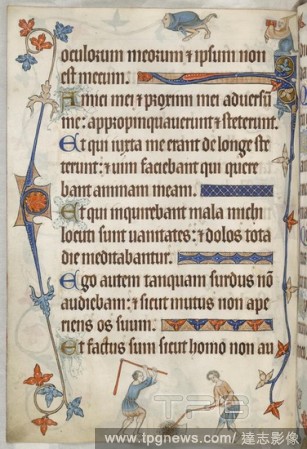 oculorum meorum ⁊ ipsum non
est mecum.
Amici mei ⁊ proximi mei adversū
me: appropinquaverunt ⁊ steterunt.
Et qui iuxta me erant de longe ste
terunt: ⁊ uim faciebant qui quere
bant animam meam.
Et qui inquirebant mala michi
locuti sunt uanitates: ⁊ dolos tota
die meditabantur.
Ego autem tanquam surdus nō
audiebam: ⁊ sicut mutus non ape
riens os suum.
Et factus sum sicut homo non au
TPG
www.tpgnews.com/達志影像